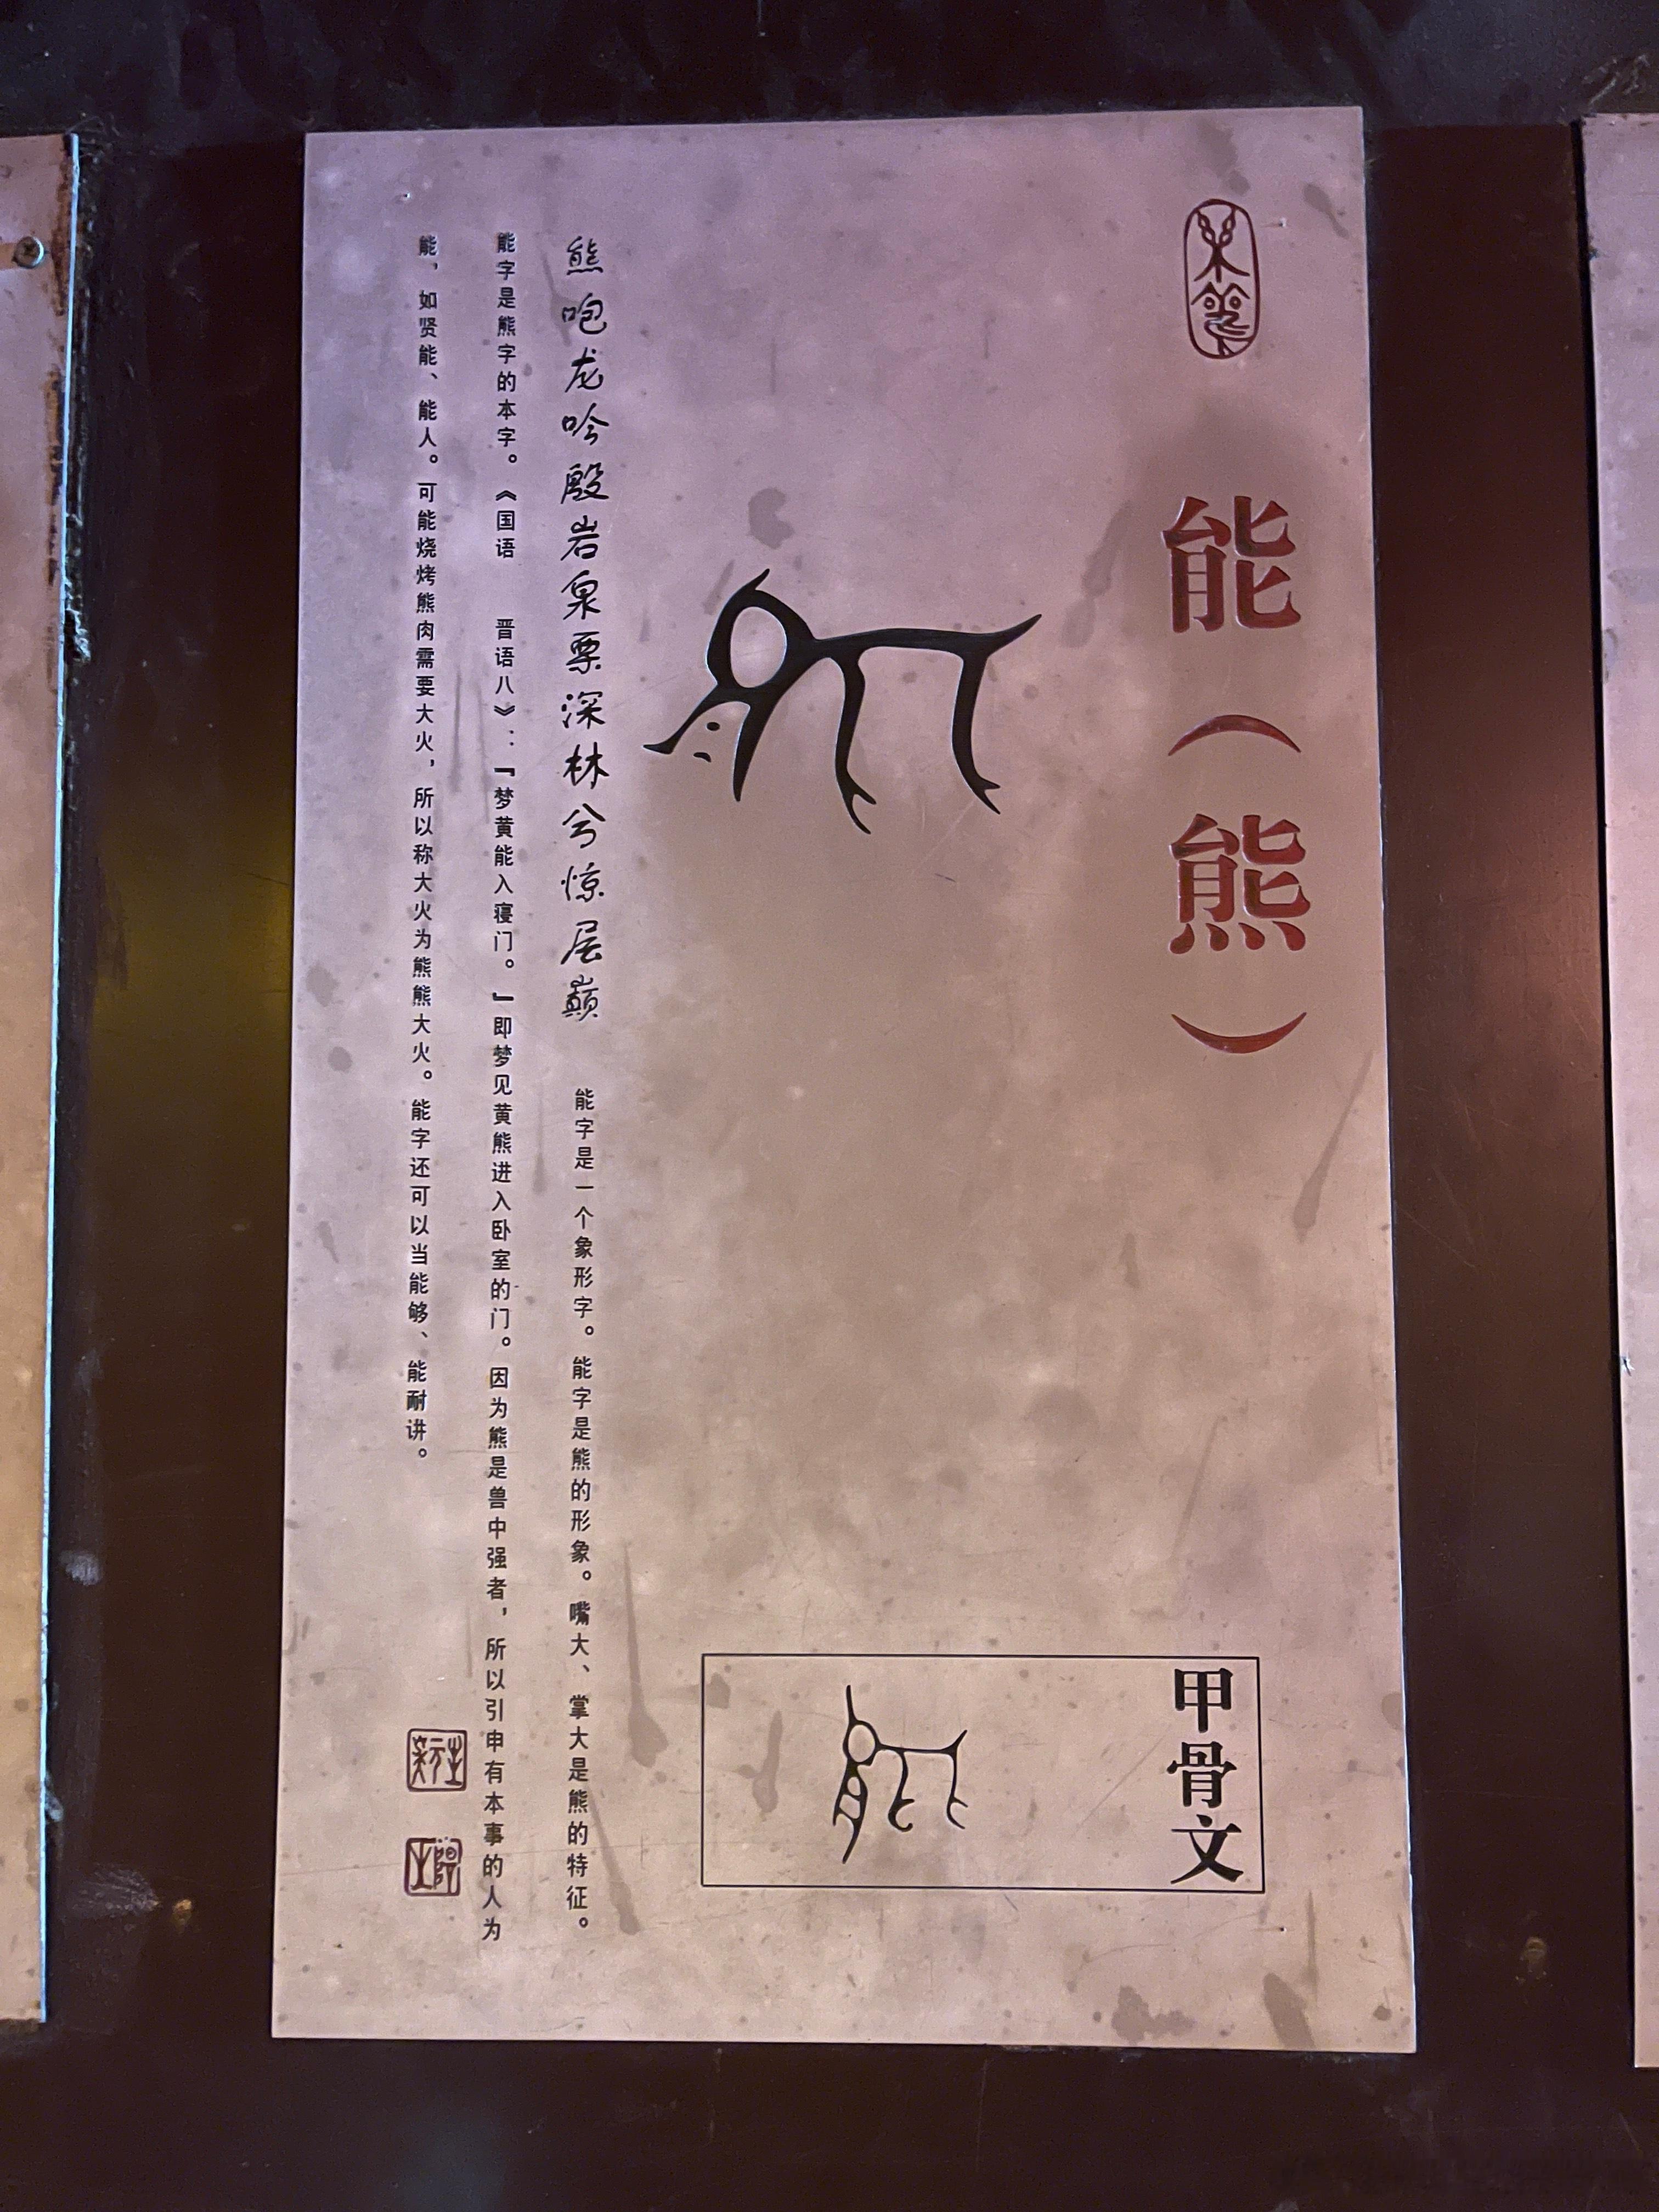 能（熊）
甲骨文
熊咆龙吟殷岩泉栗深林兮惊层巅 能字是一个象形字。能字是熊的形象。嘴大、掌大是熊的特征。
能字是熊字的本字。《国语 晋语八》：『梦黄能入寝门。』即梦见黄熊进入卧室的门。因为熊是兽中强者，所以引申有本事的人为
能，如贤能、能人。可能烧烤熊肉需要大火，所以称大火为熊熊大火。能字还可以当能够、能耐讲。